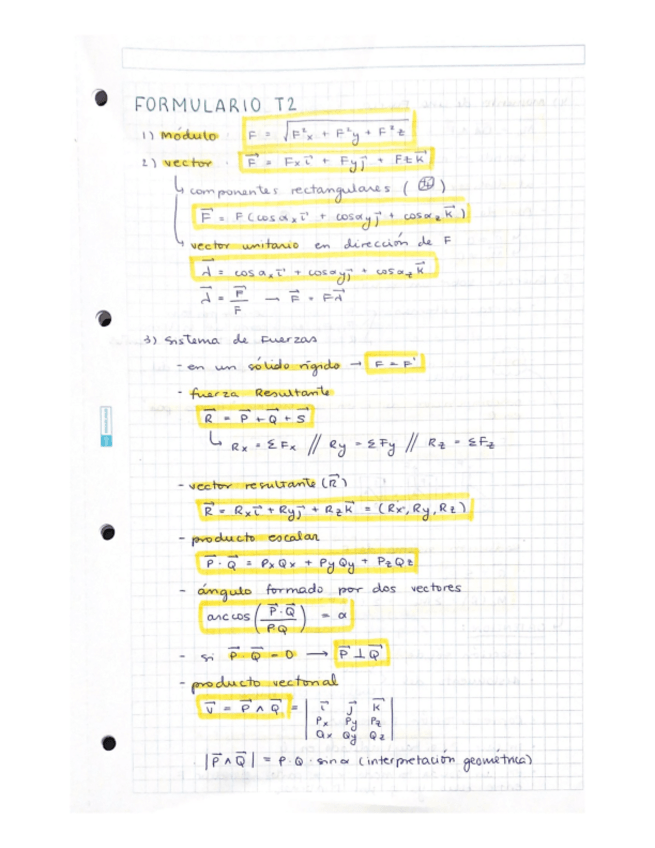 FORMULARIO T2
1) módulo: F = √(F²x + F²y + F²z)
2) vector: F⃗ = Fx i⃗ + Fy j⃗ + Fz k⃗
↳ componentes rectangulares ( )
F⃗ = F (cos αx i⃗ + cos αy j⃗ + cos αz k⃗)
↳ vector unitario en dirección de F
λ⃗ = cos αx i⃗ + cos αy j⃗ + cos αz k⃗
λ⃗ = F⃗/F → F⃗ = Fλ⃗
3) Sistema de Fuerzas
- en un sólido rígido → F = F'
- fuerza Resultante
R⃗ = P⃗ + Q⃗ + S⃗
↳ Rx = ΣFx // Ry = ΣFy // Rz = ΣFz
- vector resultante (R⃗)
R⃗ = Rx i⃗ + Ry j⃗ + Rz k⃗ = (Rx, Ry, Rz)
- producto escalar
P⃗ · Q⃗ = Px Qx + Py Qy + Pz Qz
- ángulo formado por dos vectores
arc cos (P⃗·Q⃗ / PQ) = α
- si P⃗ · Q⃗ = 0 → P⃗ ⊥ Q⃗
- producto vectorial
v⃗ = P⃗ ∧ Q⃗ = | i⃗ j⃗ k⃗ |
| Px Py Pz |
| Qx Qy Qz |
|P⃗ ∧ Q⃗| = P · Q · sin α (interpretación geométrica)